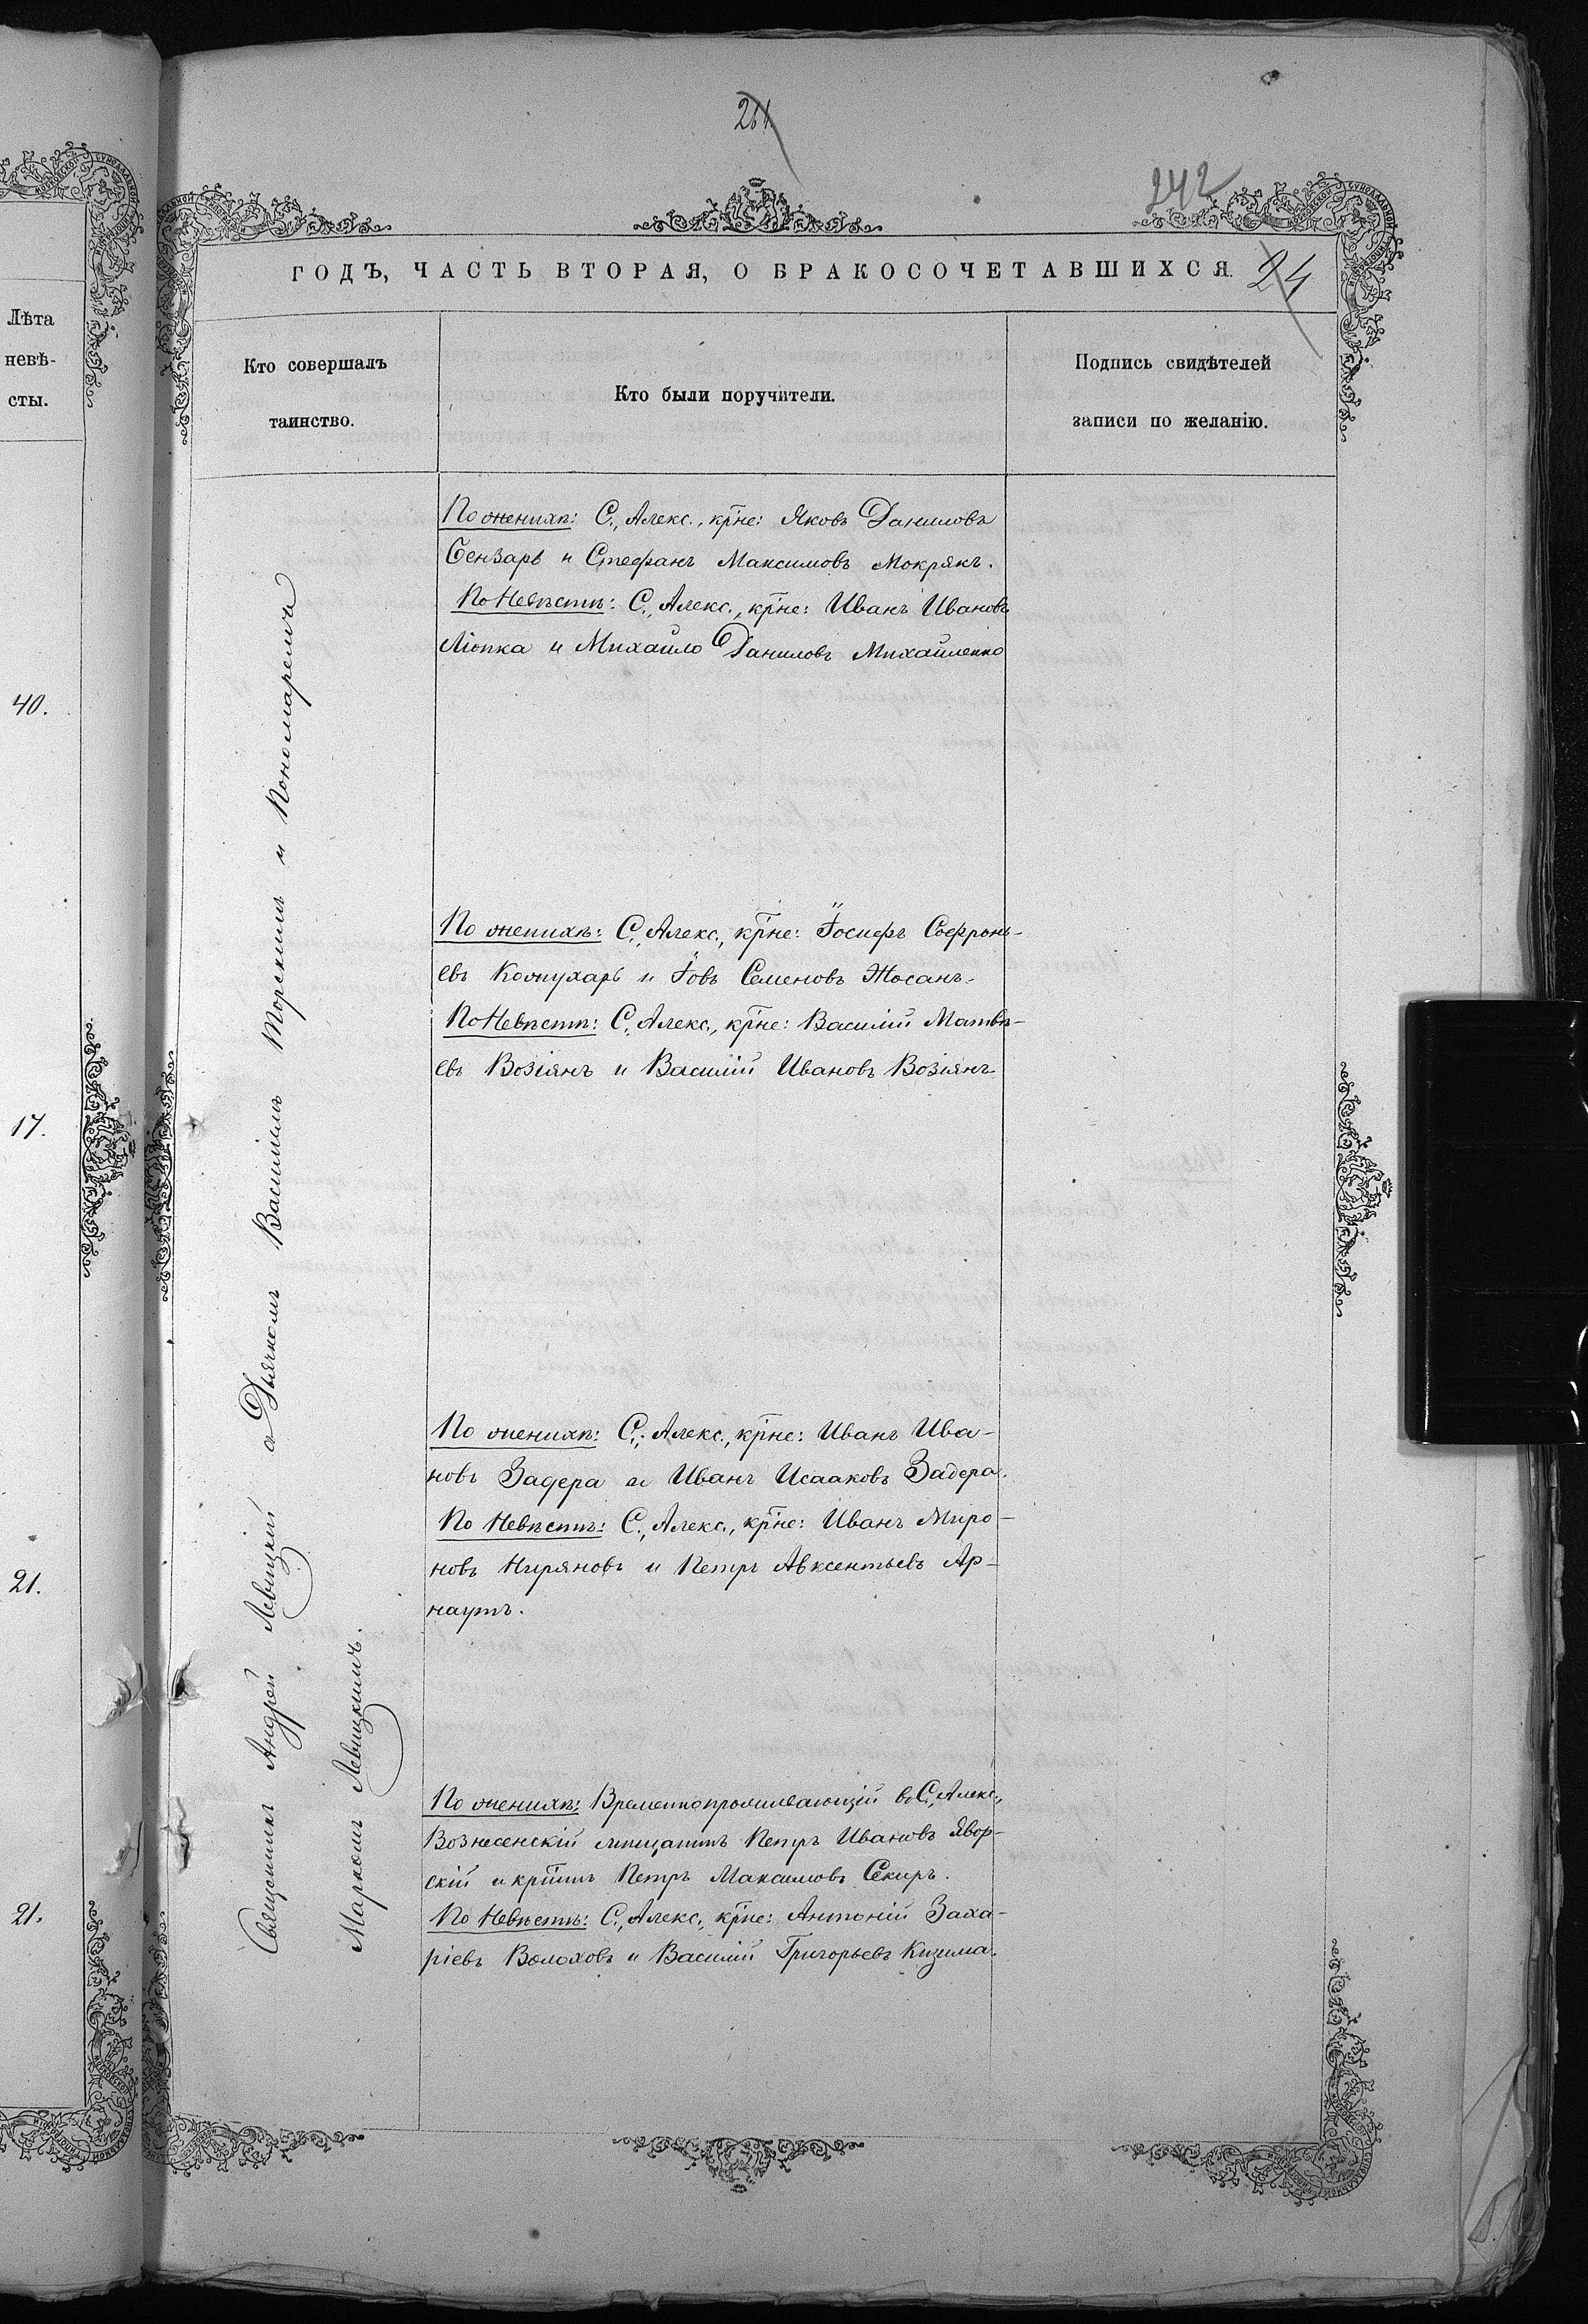 261.
242
ГОДЪ, ЧАСТЬ ВТОРАЯ, О БРАКОСОЧЕТАВШИХСЯ.
24
Лѣта
невѣ-
сты.
Кто совершалъ
таинство.
Кто были поручители.
Подпись свидѣтелей
записи по желанію.
40.
17.
21.
21.
Священникъ Андрей Левицкій съ Дьячкомъ Василіемъ Торскимъ и Пономаремъ
Маркомъ Левицкимъ.
По женихѣ: С., Алекс., кр̃не: Яковъ Даниловъ
Бензарь и Стефанъ Максимовъ Мокрякъ.
По Невѣстѣ: С., Алекс., кр̃не: Иванъ Ивановъ
Ліопка и Михайло Даниловъ Михайленко
По женихѣ: С., Алекс., кр̃не: Іосифъ Софронь-
евъ Кожухарь и Іовъ Семеновъ Жосанъ.
По Невѣстѣ: С., Алекс., кр̃не: Василій Матвѣ-
евъ Возіянъ и Василій Ивановъ Возіянъ
По женихѣ: С., Алекс., кр̃не: Иванъ Ива-
новъ Задера и Иванъ Исааковъ Задера.
По Невѣстѣ: С., Алекс., кр̃не: Иванъ Миро-
новъ Ниряновъ и Петръ Авксентьевъ Ар-
наутъ.
По женихѣ: Временнопроживающій въ С., Алекс.,
Вознесенскій мѣщанинъ Петръ Ивановъ Явор-
скій и кр̃нинъ Петръ Максимовъ Секиръ.
По Невѣстѣ: С., Алекс., кр̃не: Антоній Заха-
ріевъ Волоховъ и Василій Григорьевъ Кизима.